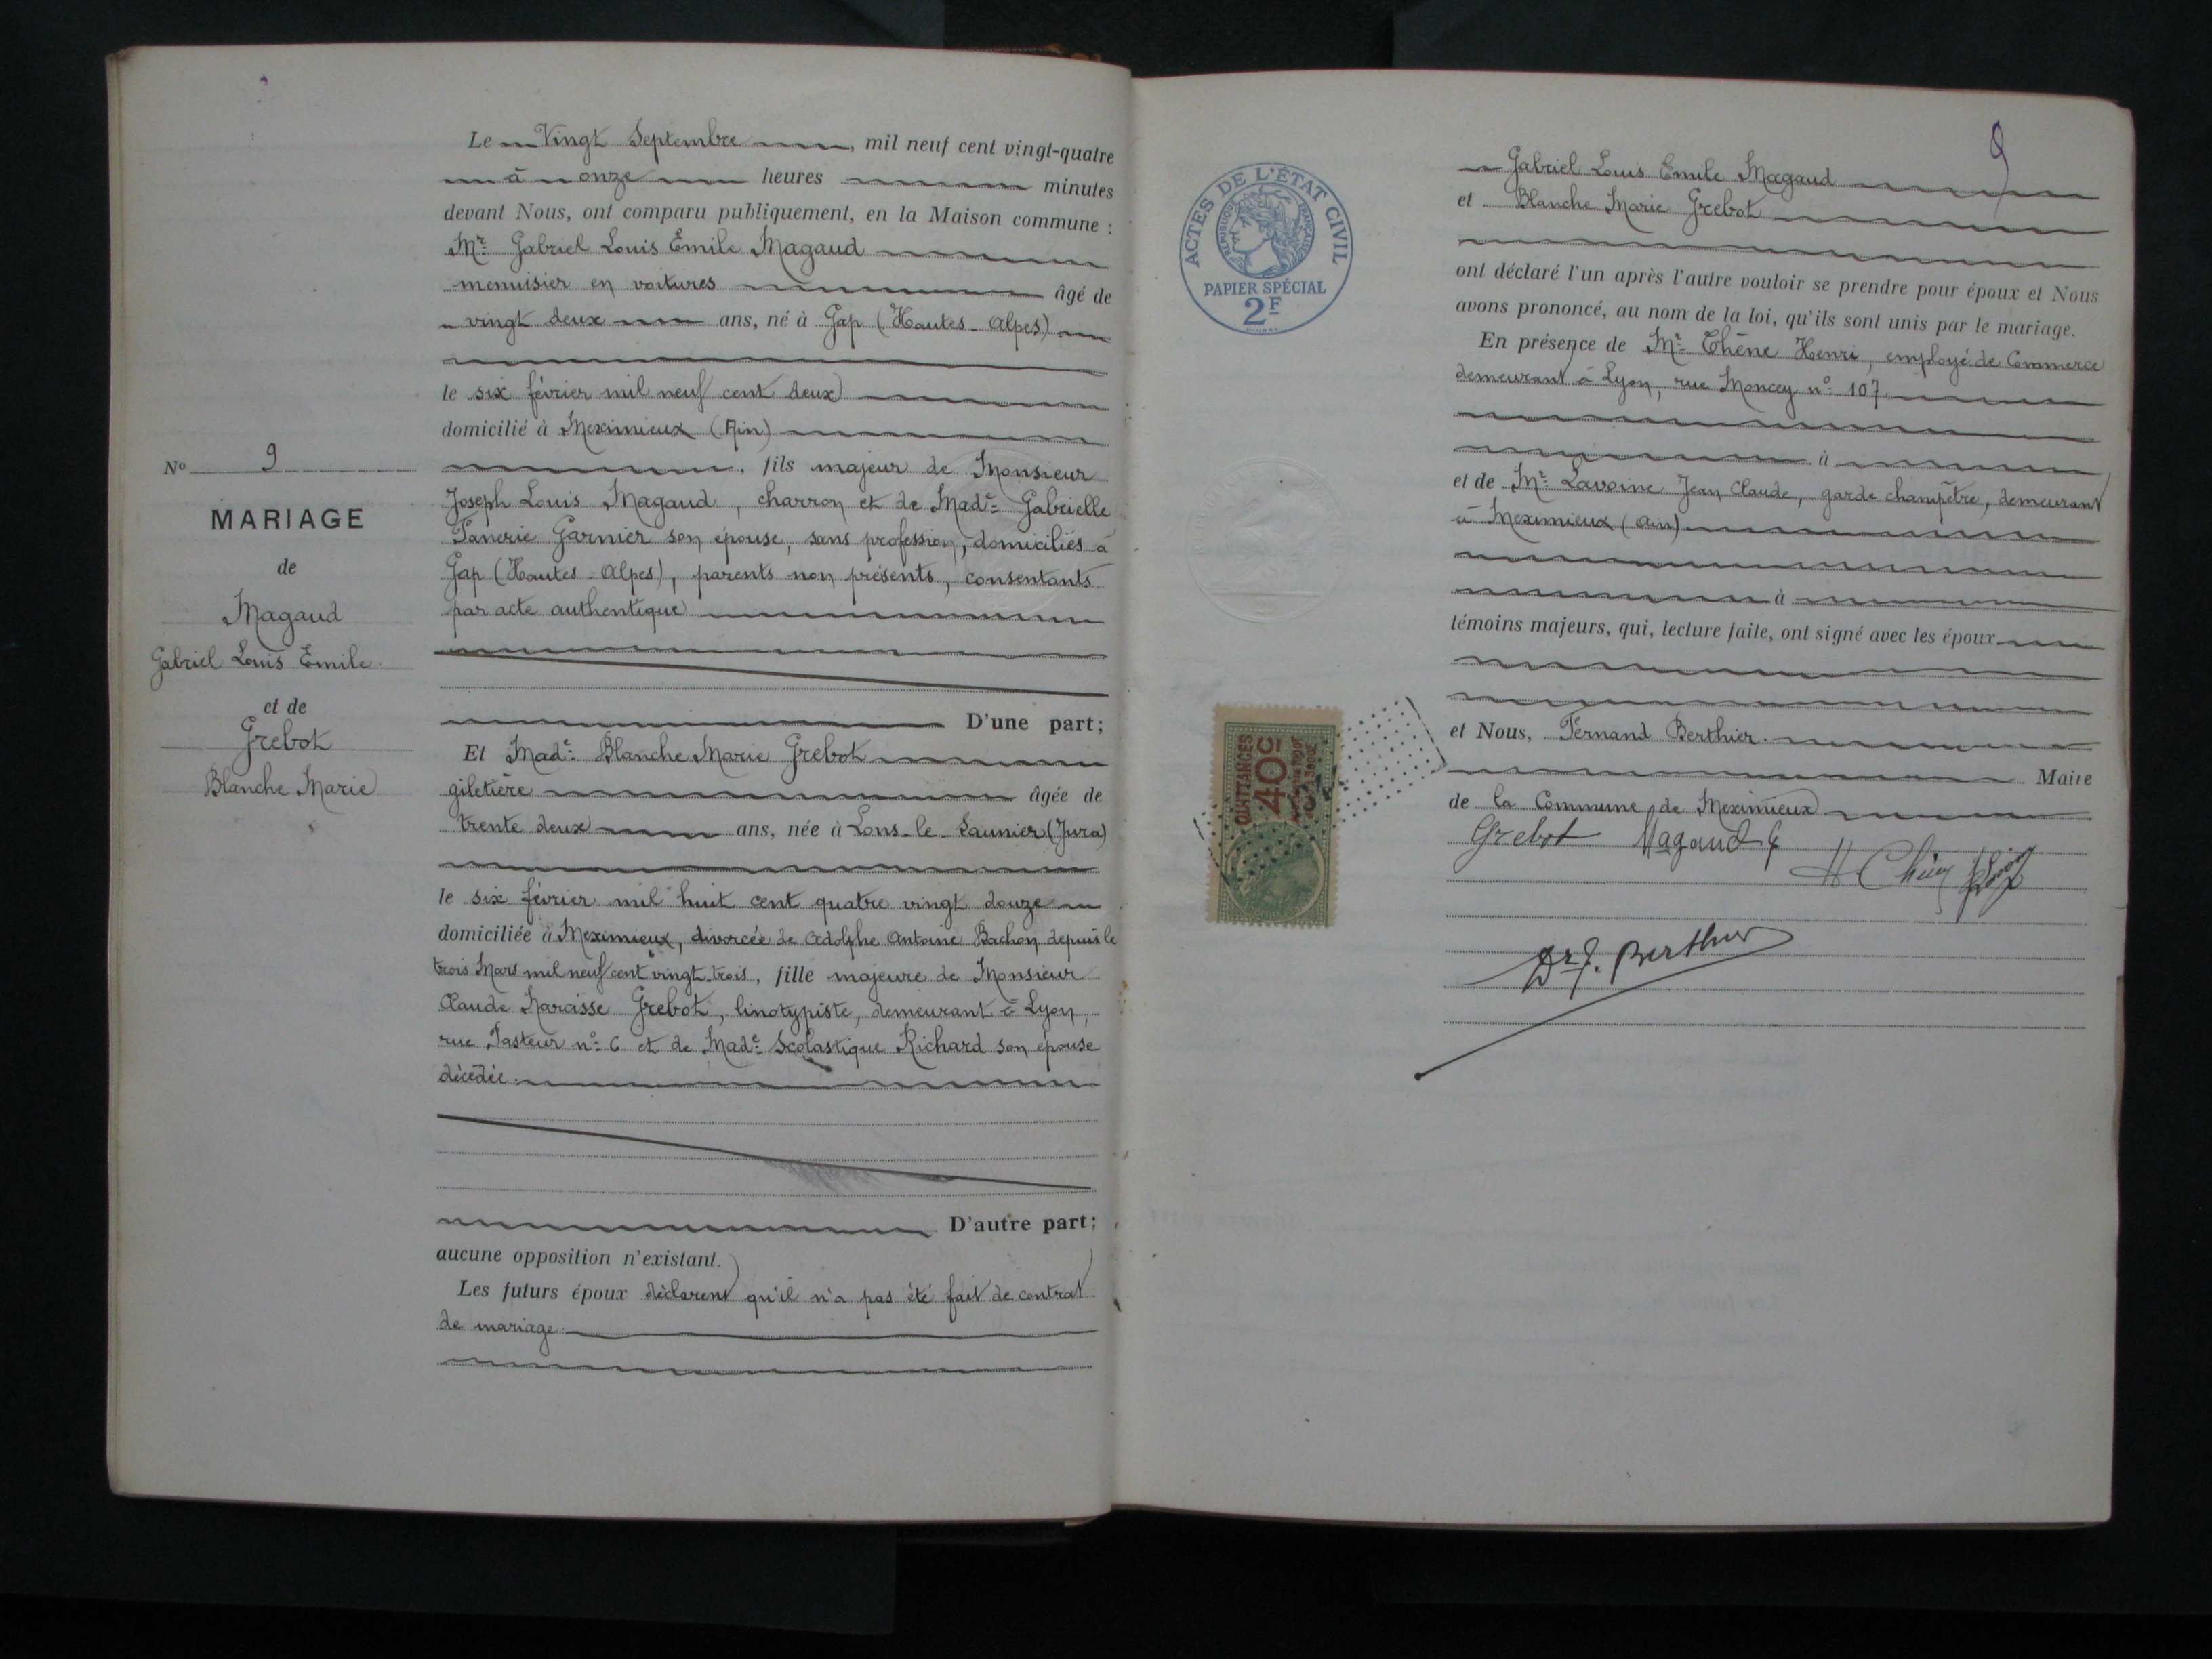 Le Vingt Septembre, mil neuf cent vingt-quatre
à onze heures minutes
devant Nous, ont comparu publiquement, en la Maison commune :
Mr Gabriel Louis Emile Magaud
menuisier en voitures âgé de
vingt deux ans, né à Gap (Hautes-Alpes)
le six février mil neuf cent deux
domicilié à Meximieux (Ain)
, fils majeur de Monsieur
Joseph Louis Magaud, charron et de Made Gabrielle
Garnier son épouse, sans profession, domiciliés à
Gap (Hautes-Alpes), parents non présents, consentants
par acte authentique
D'une part;
Et Made Blanche Marie Grebot
giletière âgée de
trente deux ans, née à Lons-le-Saunier (Jura)
le six février mil huit cent quatre vingt douze
domiciliée à Meximieux, divorcée de Adolphe Antoine Bachon depuis le
trois Mars mil neuf cent vingt-trois, fille majeure de Monsieur
Claude Narcisse Grebot, linotypiste, demeurant à Lyon,
rue Pasteur no 6 et de Made Scolastique Richard son épouse
décédée.
D'autre part;
aucune opposition n'existant.
Les futurs époux déclarent qu'il n'a pas été fait de contrat
de mariage
No 9
MARIAGE
de
Magaud
Gabriel Louis Emile
et de
Grebot
Blanche Marie
9
ACTES DE L'ÉTAT CIVIL
RÉPUBLIQUE FRANÇAISE
PAPIER SPÉCIAL
2F
QUITTANCES
40c
Gabriel Louis Emile Magaud
et Blanche Marie Grebot
ont déclaré l'un après l'autre vouloir se prendre pour époux et Nous
avons prononcé, au nom de la loi, qu'ils sont unis par le mariage.
En présence de Mr Chêne Henri, employé de Commerce
demeurant à Lyon, rue Moncey no 107
à
et de Mr Lavoine Jean Claude, garde champêtre, demeurant
à Meximieux (Ain)
à
témoins majeurs, qui, lecture faite, ont signé avec les époux
et Nous, Fernand Berthier.
Maire
de la Commune de Meximieux
Grebot Magaud G
H Chêne
Dr F. Berthier